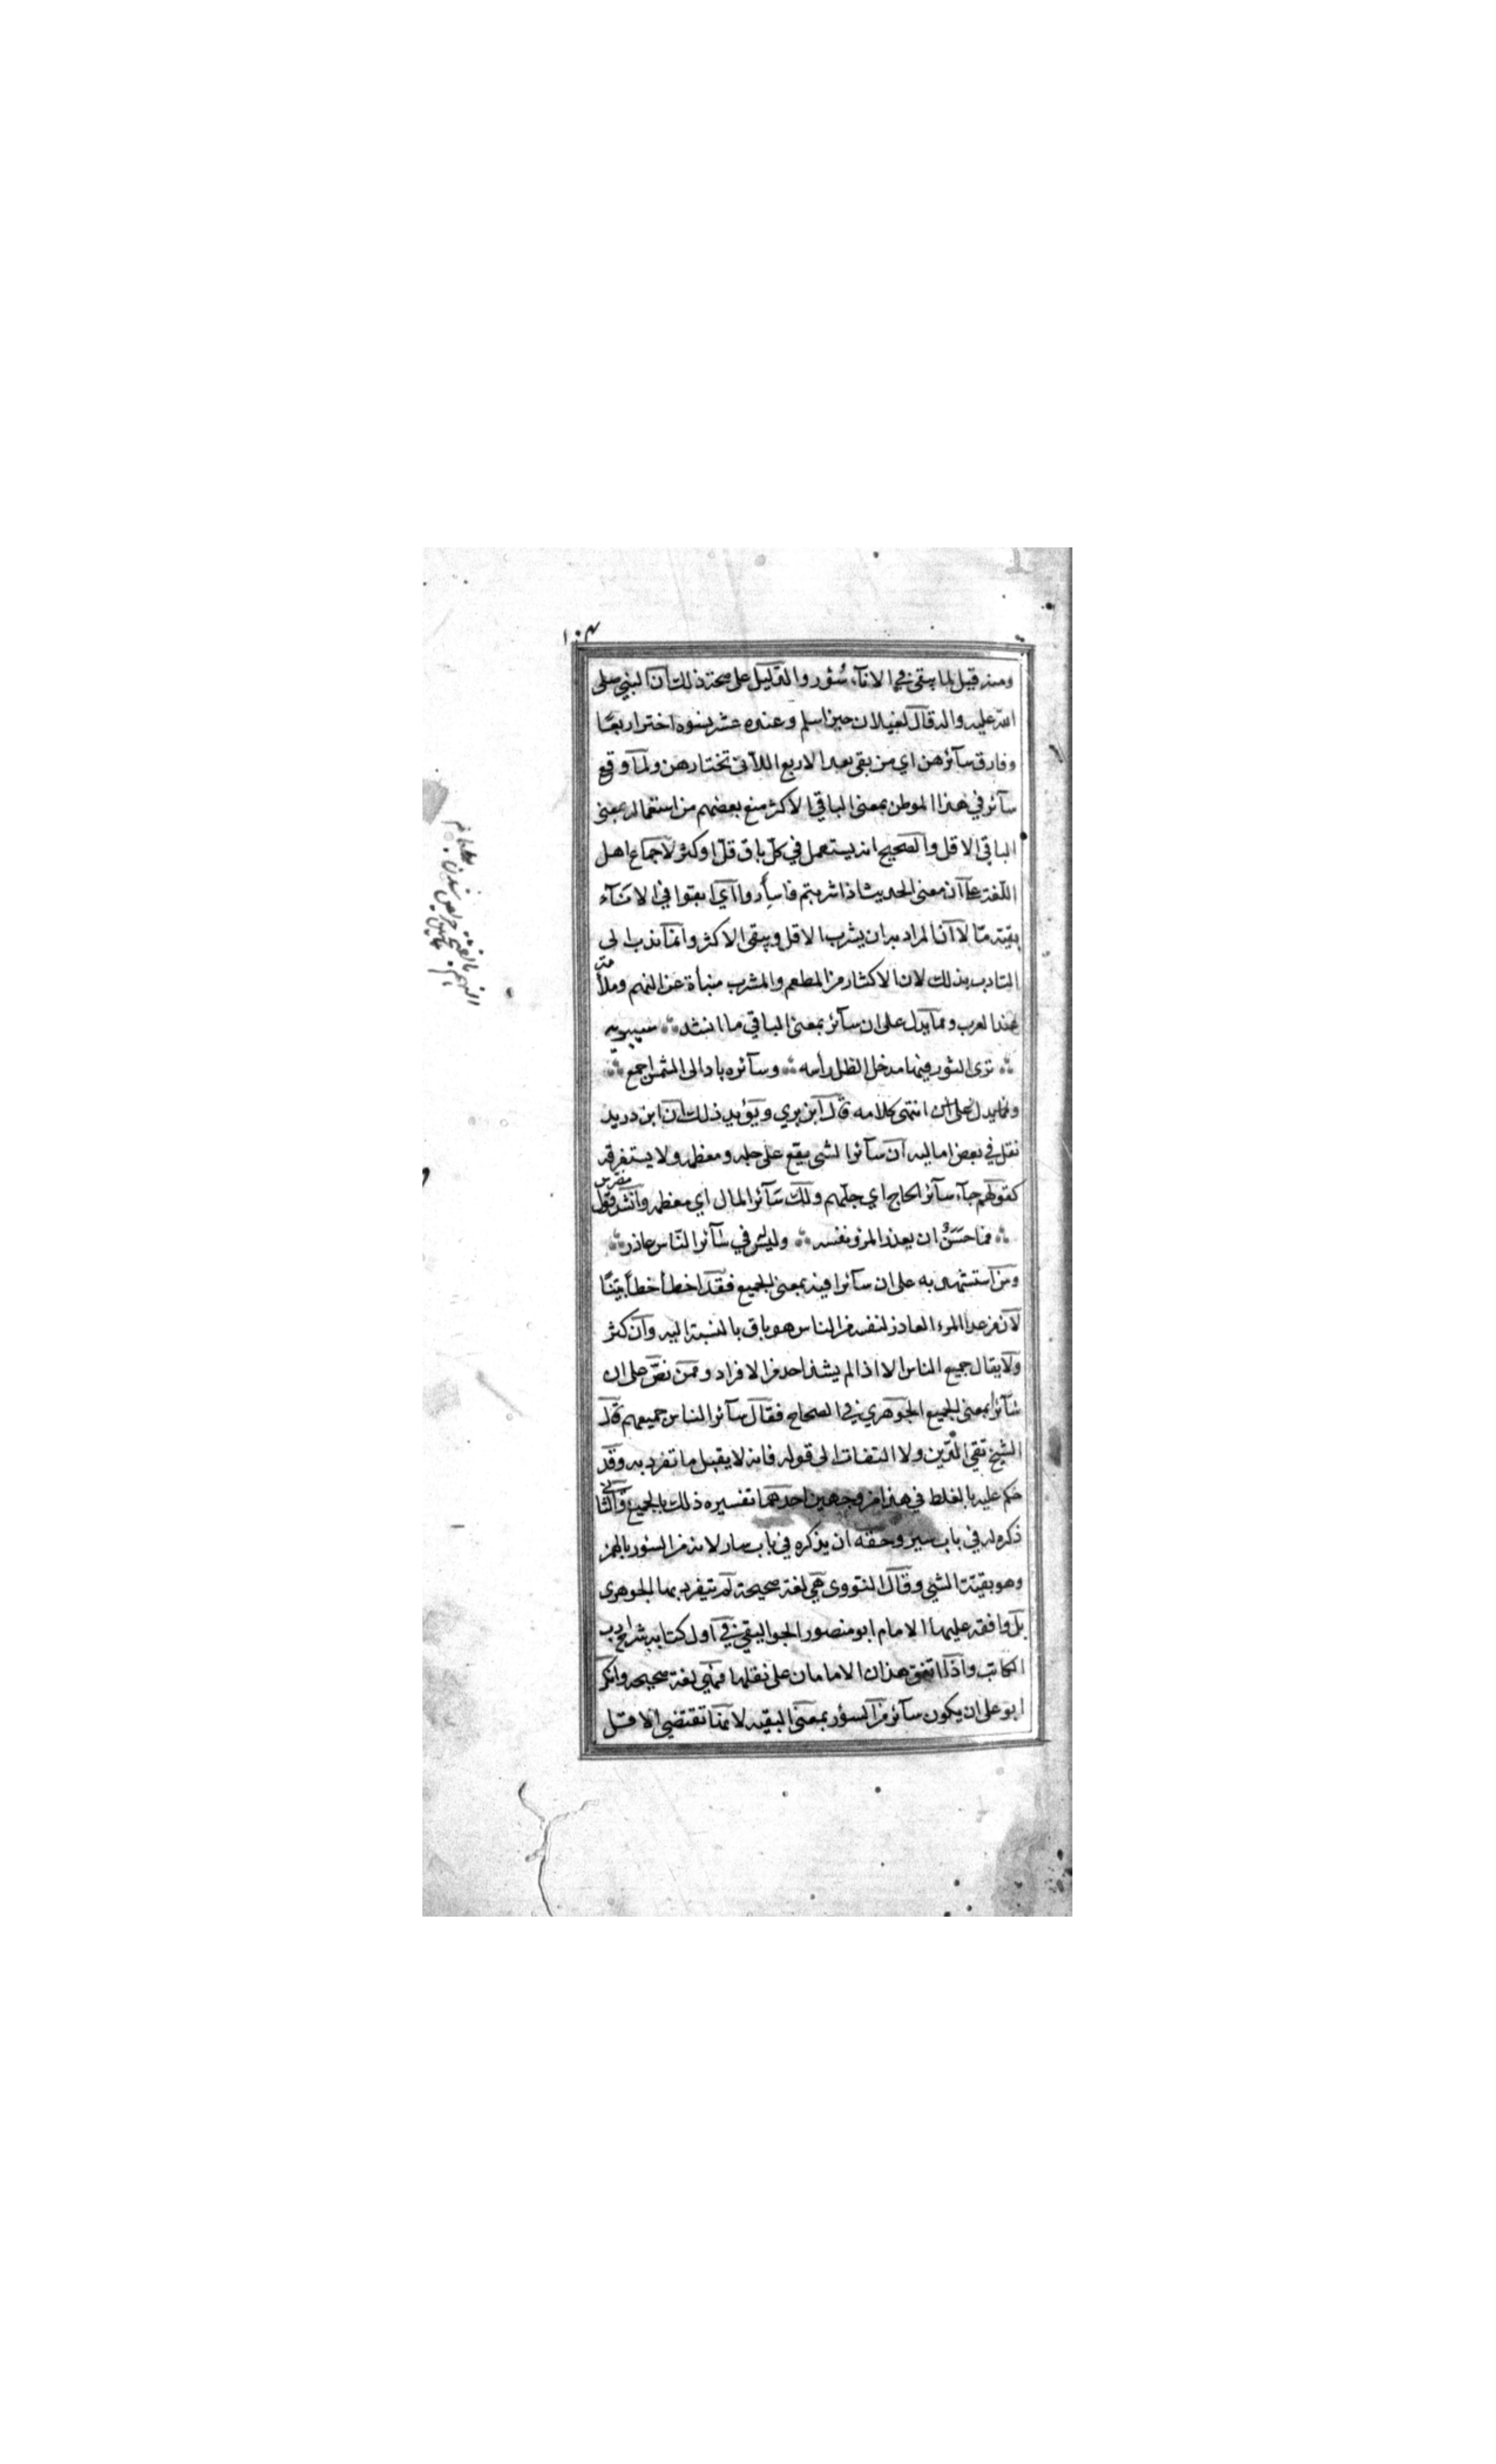 ١٠٣
ومنه قيل لما يبقى في الانآء سُؤر والدّليل على صحة ذلك ان النبي صلى
الله عليه واله قال لغيلان حين اسلم وعنده عشر نسوه اختر اربعًا
وفارق سآئرهن اي من بقى بعد الاربع اللآتى تختارهن ولمّا وقع
سآئر في هذا الموطن بمعنى الباقي الاكثر منع بعضهم من استعماله بمعنى
الباقي الاقل والصحيح انه يستعمل في كلّ باق قلّ او كثر لاجماع اهل
اللّغة على ان معنى الحديث اذا شربتم فاسأروا آي ابقوا في الانآء
بقيّة مّا لا انّ المراد به ان يشرب الاقل ويبقى الاكثر وانّما ندب الى
التادب بذلك لان الاكثار من المطعم والمشرب منبأة عن النهم وملأمة
عند العرب وممّا يدل على ان سآئر بمعنى الباقي ما انشد سيبويه
ترى الثور فيها مدخل الظل رأسه وسآئره باد الى الشمس اجمع
انتهى كلامه قال ابن بري ويؤيد ذلك ان ابن دريد
نقل في بعض اماليه ان سآئر الشى يقع على جله ومعظمه ولا يستغرقه
كقولهم جآء سآئر الحاج اي جلّهم ولك سَآئر المال اي معظمه وانشد قول مضرس
فما حَسَنٌ ان يعذر المرؤ نفسه وليس في سآئر النّاس عاذر
ومن استشهد به على ان سآئرا فيه بمعنى الجميع فقد اخطأ خطأ بيّنًا
لان من عدا المرء العاذر لنفسه من الناس هو باق بالنسبة اليه وان كثر
ولا يقال جميع الناس الا اذا لم يشذ احد من الافراد وممن نصّ على ان
سآئرا بمعنى الجميع الجوهري في الصحاح فقال سآئر الناس جميعهم قال
الشيخ تقي الدّين ولا التفات الى قوله فانه لا يقبل ما تفرد به وقد
حكم عليه بالغلط في هذا من وجهين احدهما تفسيره ذلك بالجميع والثانى
ذكره له في باب سير وحقه ان يذكره في باب سار لانه من السئور بالهمز
وهو بقيّة الشي وقال النووى هي لغة صحيحة لم يتفرد بها الجوهرى
بل وافقه عليها الامام ابو منصور الجواليقي في آول كتابه شرح ادب
الكاتب واذا اتفق هذان الامامان على نقلها فهي لغة صحيحه وانكر
ابو على ان يكون سآئر من السؤر بمعنى البقيه لانها تقتضي الاقل